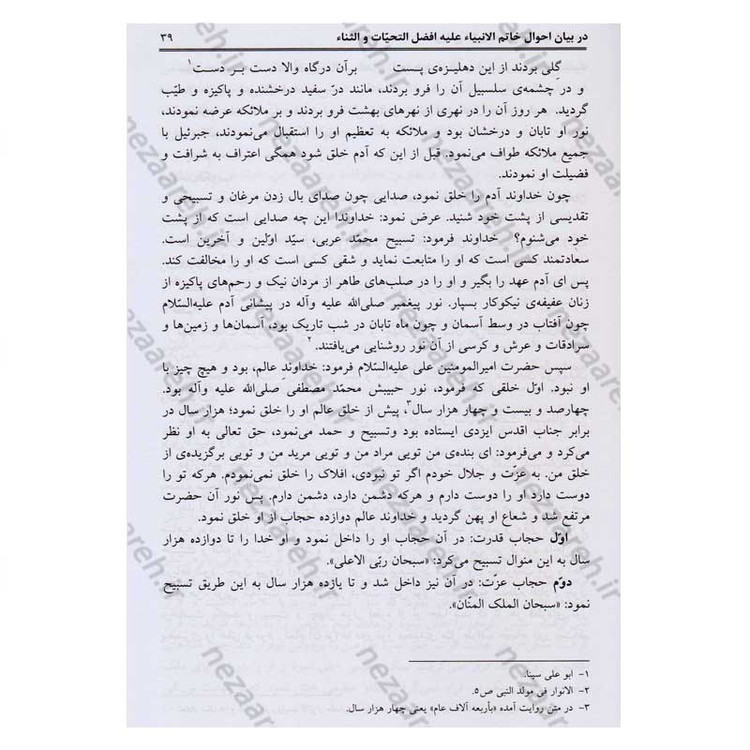 در بیان احوال خاتم الانبیاء علیه افضل التحیّات و الثناء ۳۹
گلی بردند از این دهلیزه‌ی پست برآن درگاه والا دست بر دست۱
و در چشمه‌ی سلسبیل آن را فرو بردند، مانند درّ سفید درخشنده و پاکیزه و طیّب
گردید. هر روز آن را در نهری از نهرهای بهشت فرو بردند و بر ملائکه عرضه نمودند،
نور او تابان و درخشان بود و ملائکه به تعظیم او را استقبال می‌نمودند، جبرئیل با
جمیع ملائکه طواف می‌نمود. قبل از این که آدم خلق شود همگی اعتراف به شرافت و
فضیلت او نمودند.
چون خداوند آدم را خلق نمود، صدایی چون صدای بال زدن مرغان و تسبیحی و
تقدیسی از پشت خود شنید. عرض نمود: خداوندا این چه صدایی است که از پشت
خود می‌شنوم؟ خداوند فرمود: تسبیح محمّد عربی، سیّد اوّلین و آخرین است.
سعادتمند کسی است که او را متابعت نماید و شقی کسی است که او را مخالفت کند.
پس ای آدم عهد را بگیر و او را در صلب‌های طاهر از مردان نیک و رحم‌های پاکیزه از
زنان عفیفه‌ی نیکوکار بسپار. نور پیغمبر صلی‌الله علیه وآله در پیشانی آدم علیه‌السّلام
چون آفتاب در وسط آسمان و چون ماه تابان در شب تاریک بود، آسمان‌ها و زمین‌ها و
سرادقات و عرش و کرسی از آن نور روشنایی می‌یافتند.۲
سپس حضرت امیرالمومنین علی علیه‌السّلام فرمود: خداوندِ عالم، بود و هیچ چیز با
او نبود. اوّل خلقی که فرمود، نور حبیبش محمّد مصطفی صلی‌الله علیه وآله بود.
چهارصد و بیست و چهار هزار سال۳، پیش از خلق عالم او را خلق نمود؛ هزار سال در
برابر جناب اقدس ایزدی ایستاده بود وتسبیح و حمد می‌نمود، حق تعالی به او نظر
می‌کرد و می‌فرمود: ای بنده‌ی من تویی مراد من و تویی مرید من و تویی برگزیده‌ی از
خلق من. به عزّت و جلال خودم اگر تو نبودی، افلاک را خلق نمی‌نمودم. هرکه تو را
دوست دارد او را دوست دارم و هرکه دشمن دارد، دشمن دارم. پس نور آن حضرت
مرتفع شد و شعاع او پهن گردید و خداوند عالم دوازده حجاب از او خلق نمود.
اوّل حجاب قدرت: در آن حجاب او را داخل نمود و او خدا را تا دوازده هزار
سال به این منوال تسبیح می‌کرد: «سبحان ربّی الاعلی».
دوّم حجاب عزّت: در آن نیز داخل شد و تا یازده هزار سال به این طریق تسبیح
نمود: «سبحان الملک المنّان».
۱- ابو علی سینا.
۲- الانوار فی مولد النبی ص۵.
۳- در متن روایت آمده «بأربعه آلاف عام» یعنی چهار هزار سال.
nezaareh.ir